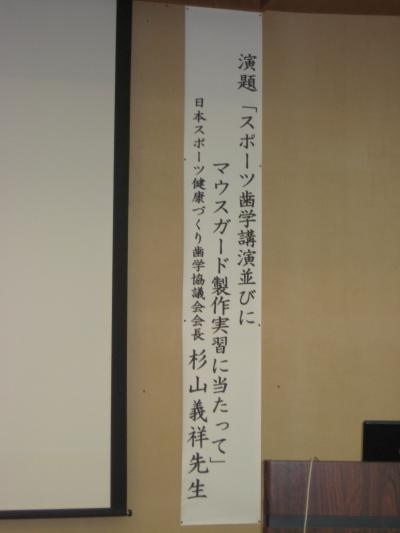 演題「スポーツ歯学講演並びに
マウスガード製作実習に当たって」
日本スポーツ健康づくり歯学協議会会長 杉山義祥先生